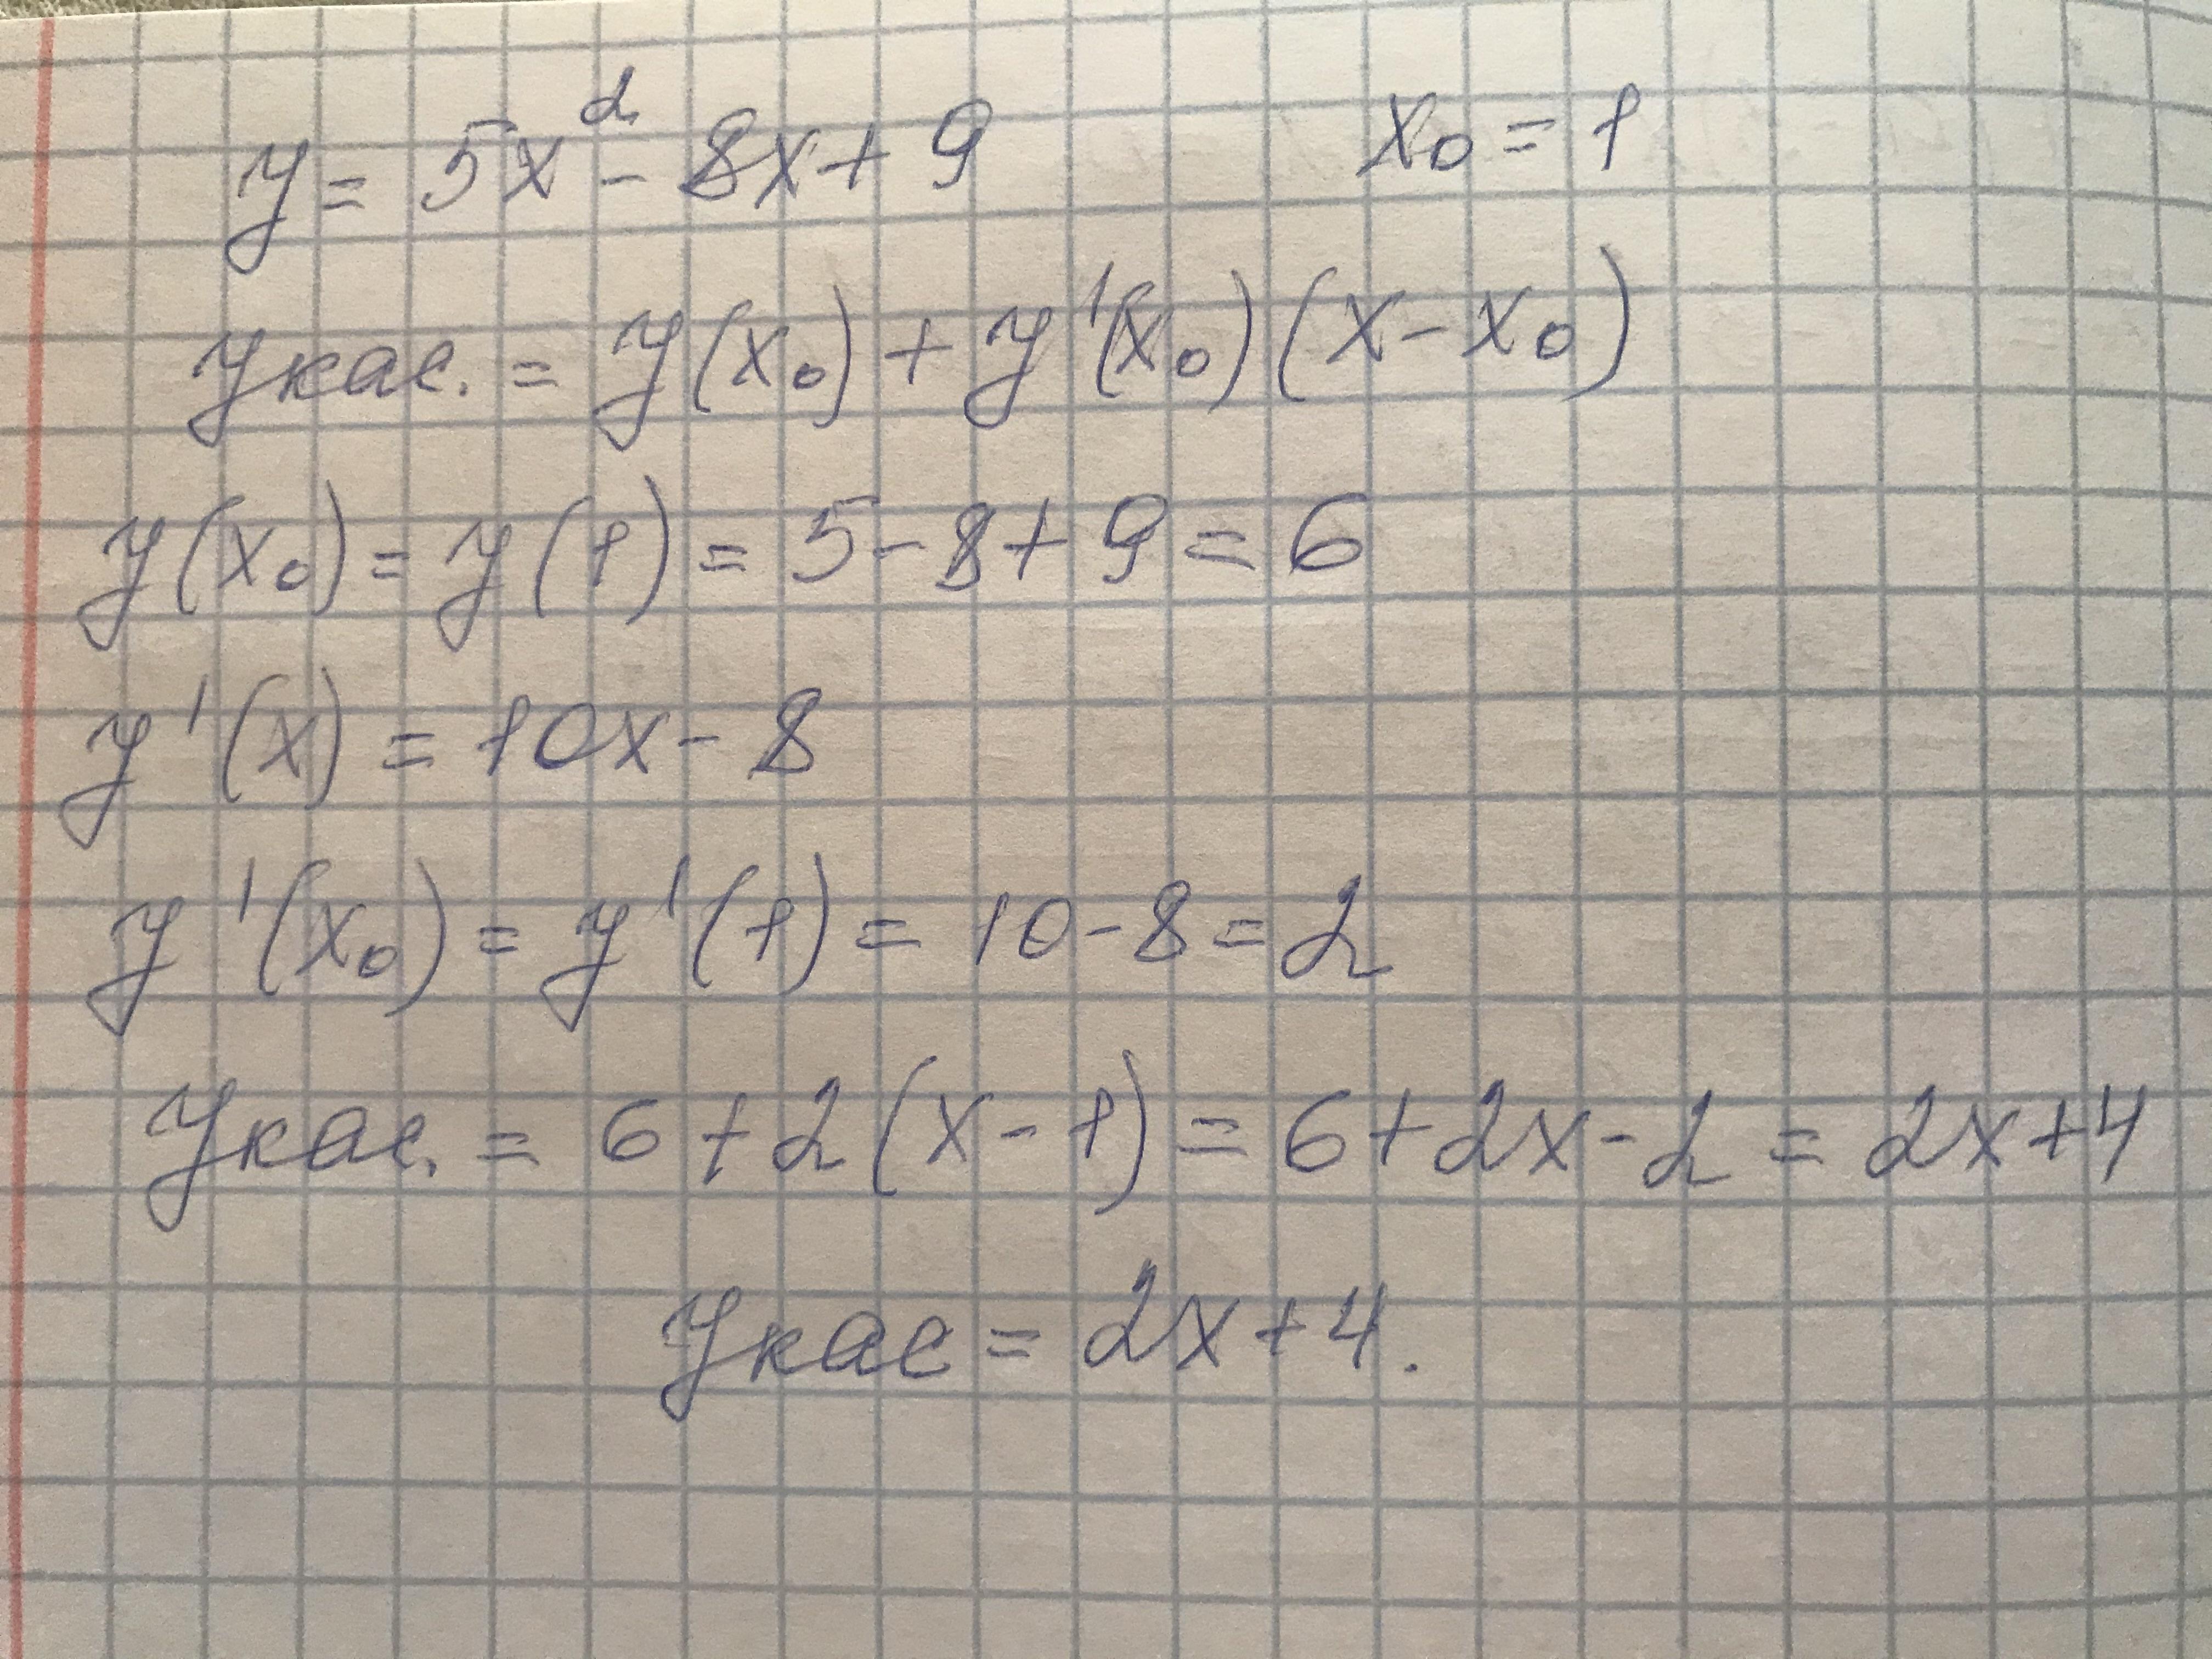 y = 5x² - 8x + 9 x₀ = 1
yкас. = y(x₀) + y'(x₀)(x - x₀)
y(x₀) = y(1) = 5 - 8 + 9 = 6
y'(x) = 10x - 8
y'(x₀) = y'(1) = 10 - 8 = 2
yкас. = 6 + 2(x - 1) = 6 + 2x - 2 = 2x + 4
yкас = 2x + 4.